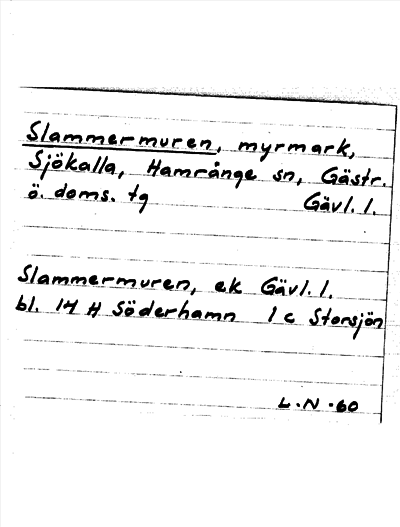 Slammermuren, myrmark,
Sjökalla, Hamrånge sn, Gästr.
ö. doms. tg Gävl. l.
Slammermuren, ek Gävl. l.
bl. 14 H Söderhamn 1 c Storsjön
L.N.60